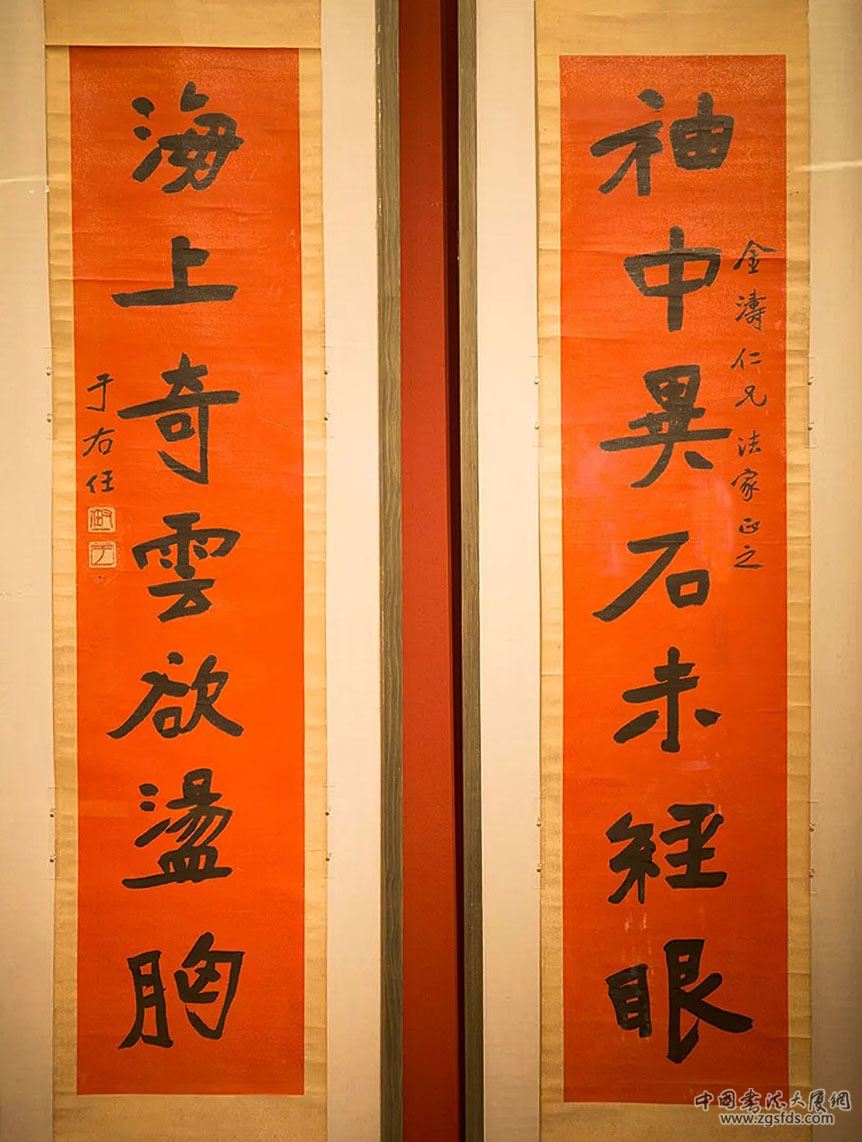 袖中異石未經眼
金濤仁兄法家正之
海上奇雲欲盪胸
于右任
中国书法大厦網
www.zgsfds.com